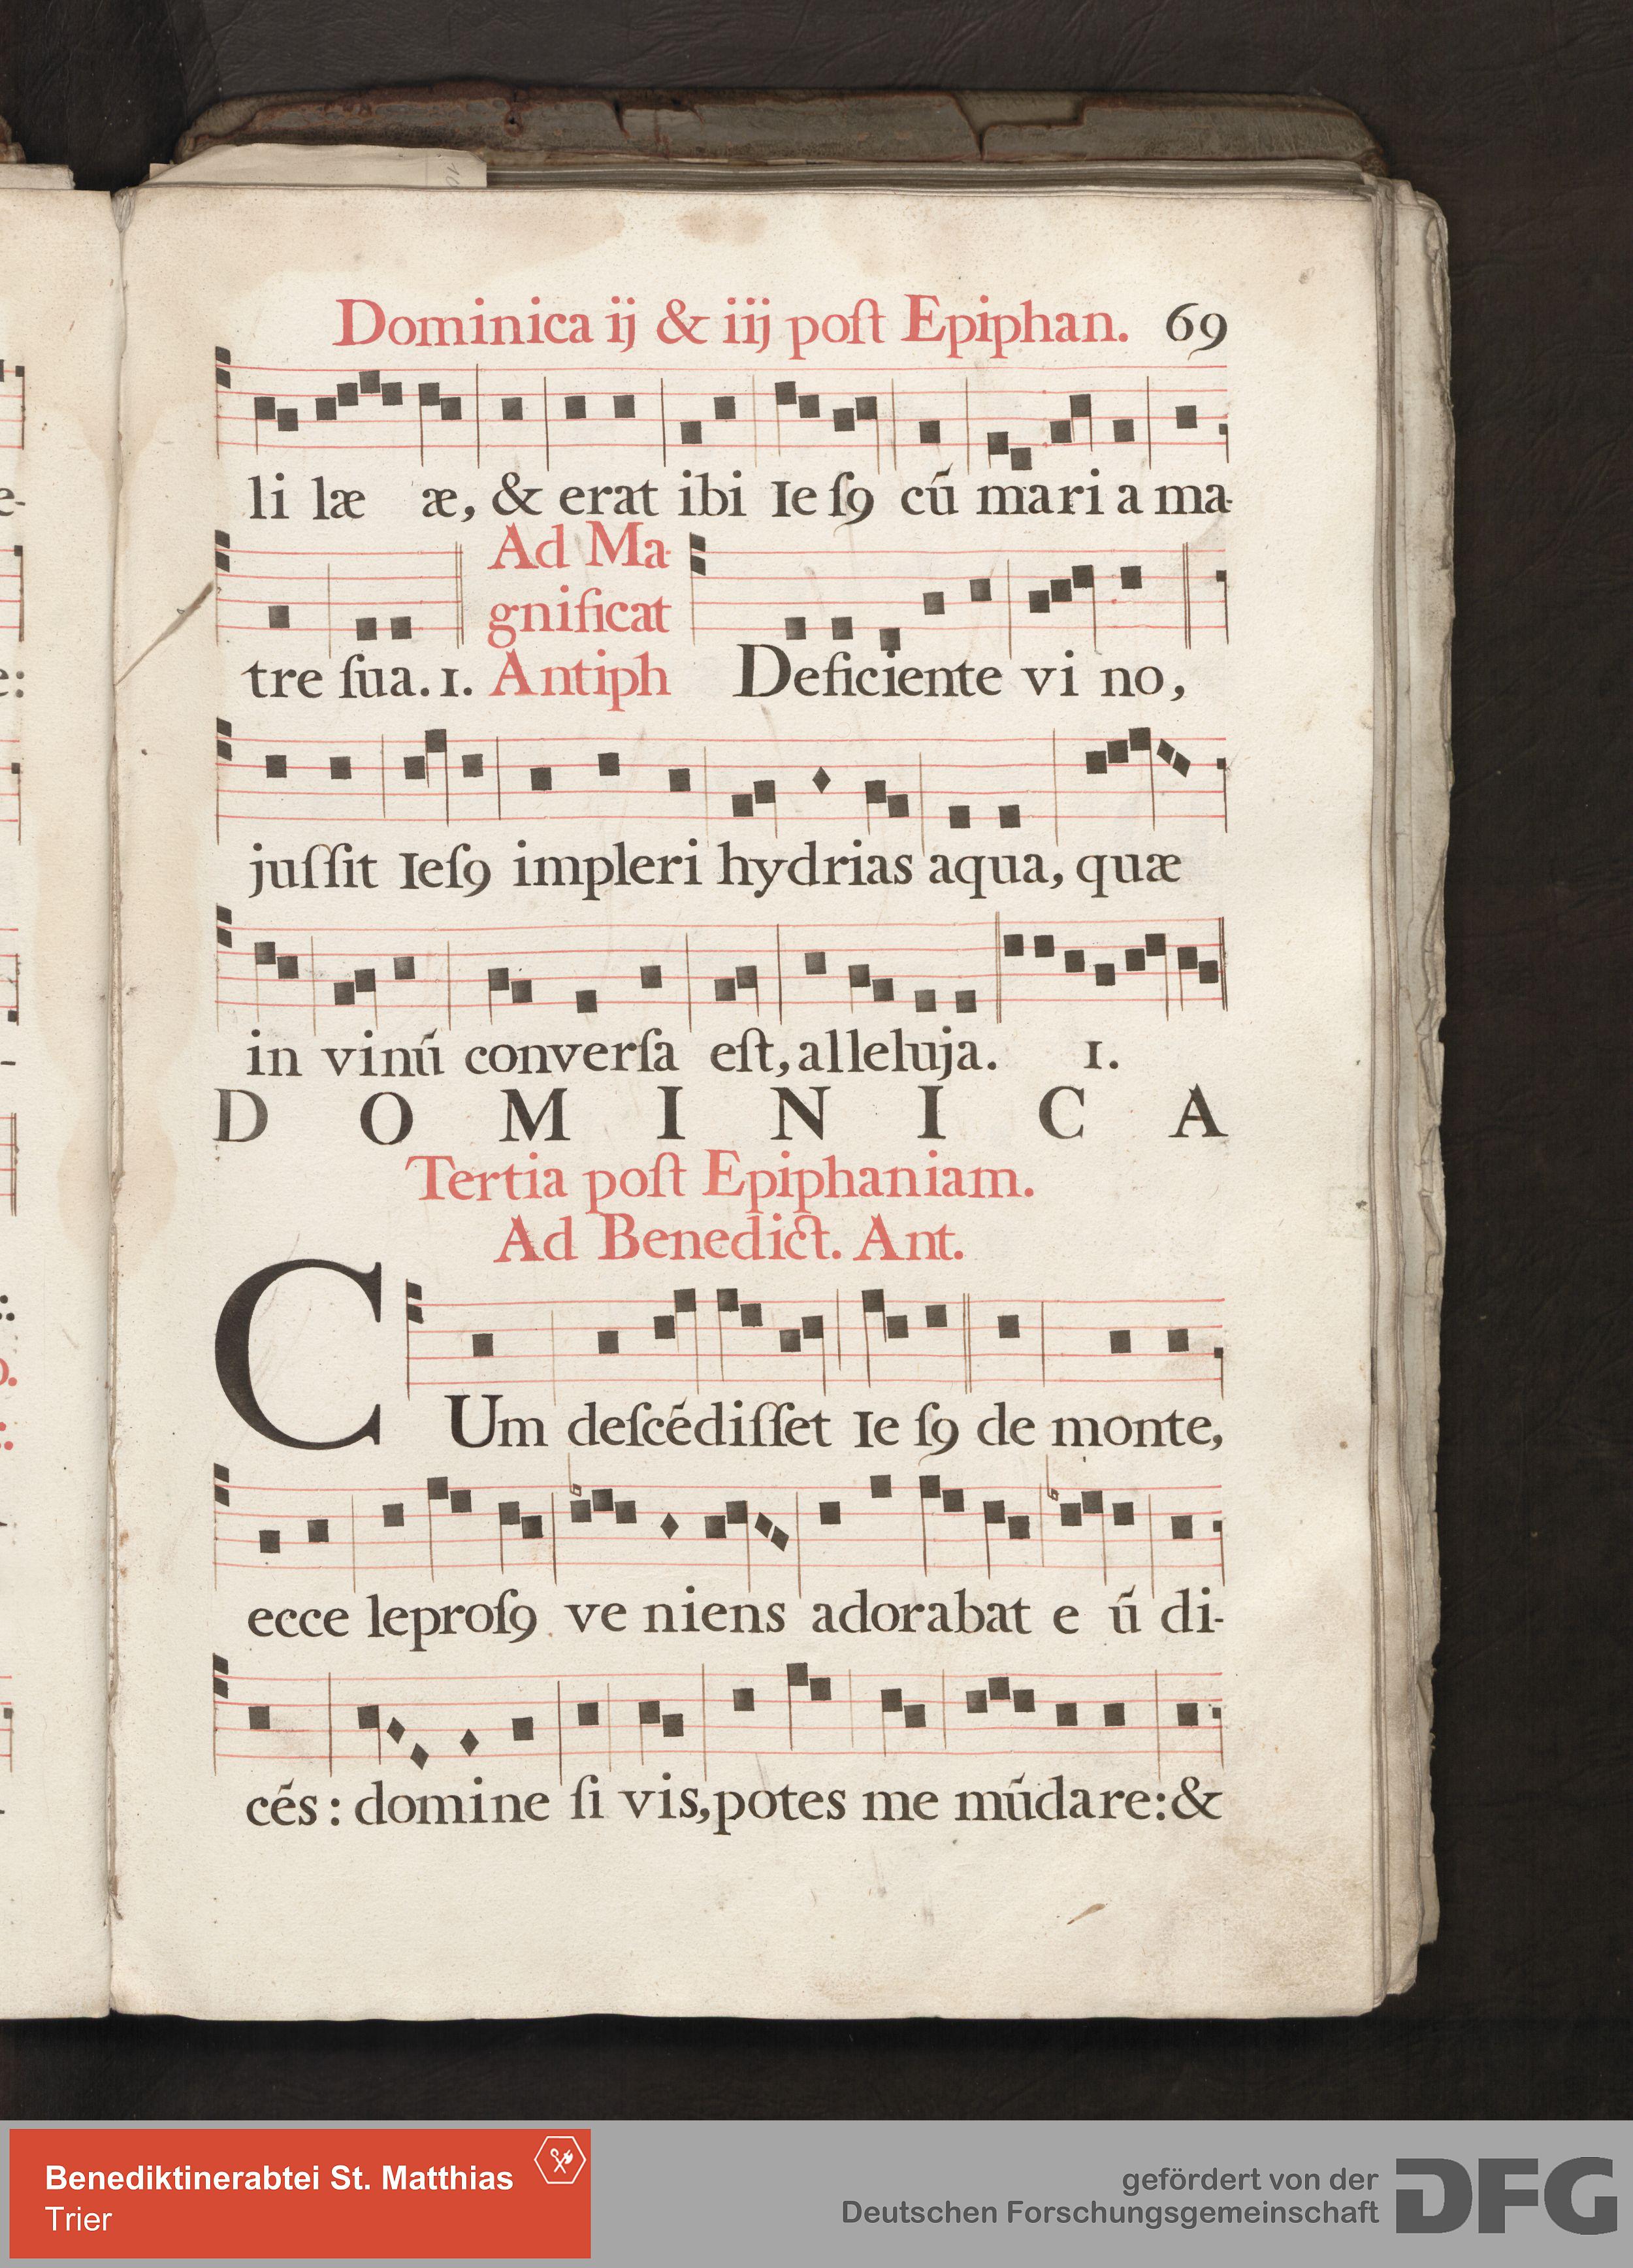 Dominica ij & iij poſt Epiphan. 69
li læ æ, & erat ibi Ie ſꝯ cũ mari a ma-
Ad Ma-
gnificat
tre ſua. 1. Antiph Deficiente vi no,
juſſit Ieſꝯ impleri hydrias aqua, quæ
in vinũ converſa eſt, alleluja. 1.
D O M I N I C A
Tertia poſt Epiphaniam.
Ad Benedict. Ant.
CUm deſcẽdiſſet Ie ſꝯ de monte,
ecce leproſꝯ ve niens adorabat e ũ di-
cẽs: domine ſi vis, potes me mũdare: &
Benediktinerabtei St. Matthias
Trier
gefördert von der
Deutschen Forschungsgemeinschaft
DFG